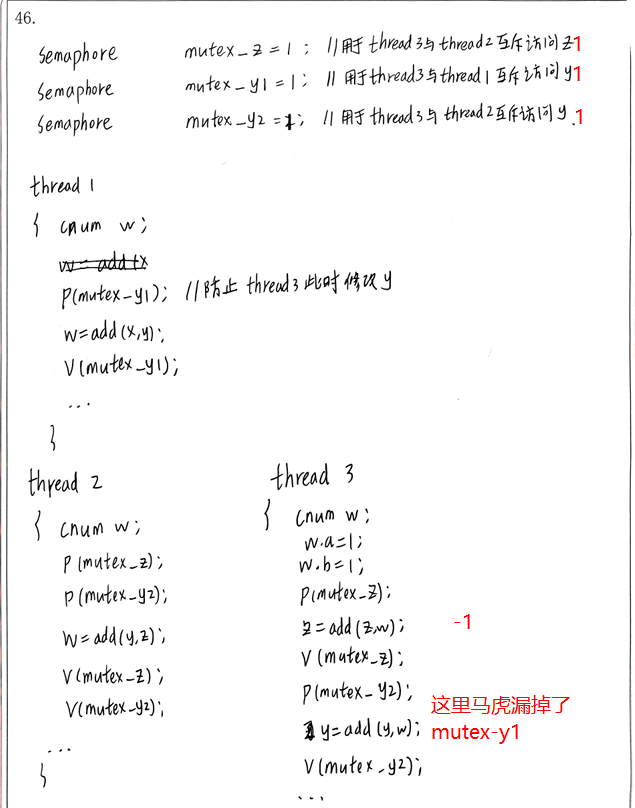 46.
semaphore mutex_z = 1; //用于thread3与thread2互斥访问z 1
semaphore mutex_y1 = 1; //用于thread3与thread1互斥访问y 1
semaphore mutex_y2 = 1; //用于thread3与thread2互斥访问y. 1
thread 1
{ cnum w;
w = add(x
P(mutex_y1); //防止thread3此时修改y
w=add(x,y);
V(mutex_y1);
...
}
thread 2
{ cnum w;
P(mutex_z);
P(mutex_y2);
w=add(y,z);
V(mutex_z);
V(mutex_y2);
...
}
thread 3
{ cnum w;
w.a=1;
w.b=1;
P(mutex_z);
z=add(z,w); -1
V(mutex_z);
P(mutex_y2);
y=add(y,w);
V(mutex_y2);
...
这里马虎漏掉了
mutex-y1